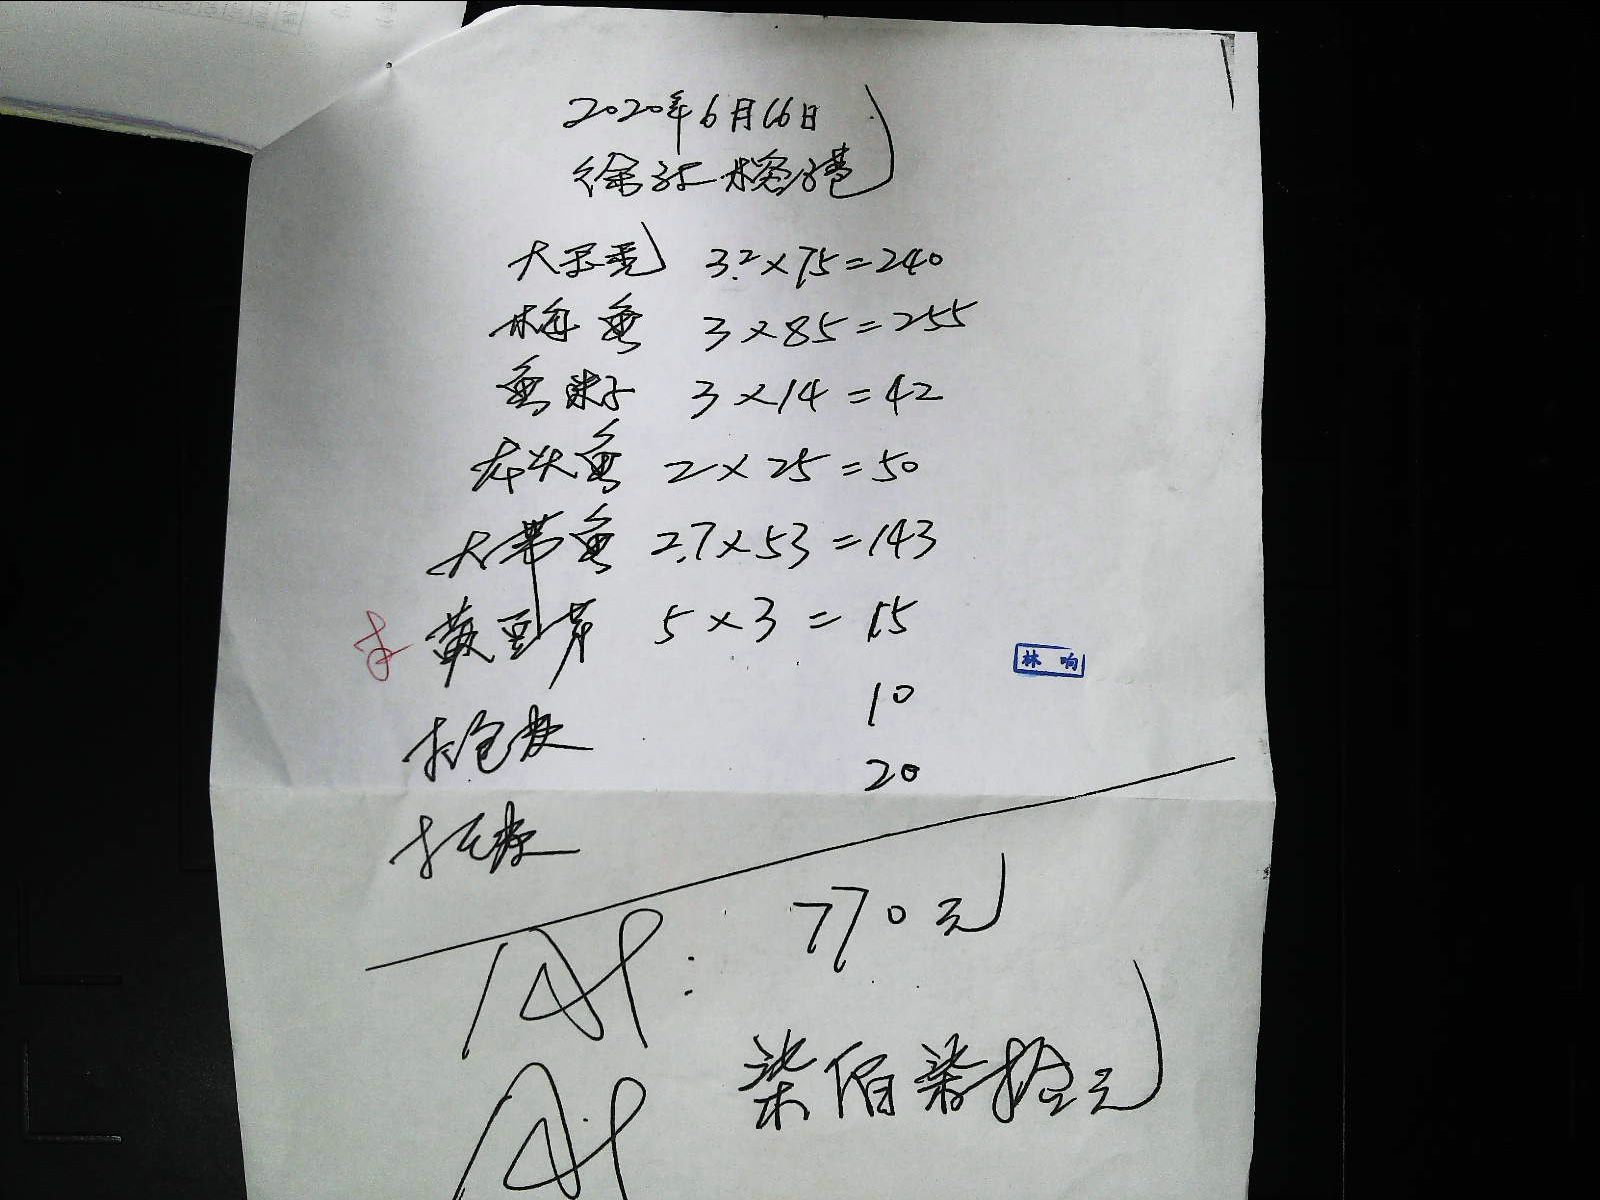 2020年6月16日
徐江榕港
大 3.2×75=240
梅鱼 3×85=255
鱼 3×14=42
龙头鱼 2×25=50
大带鱼 2.7×53=143
黄豆芽 5×3=15
林 响
打包费 10
20
770元
柒佰柒拾元